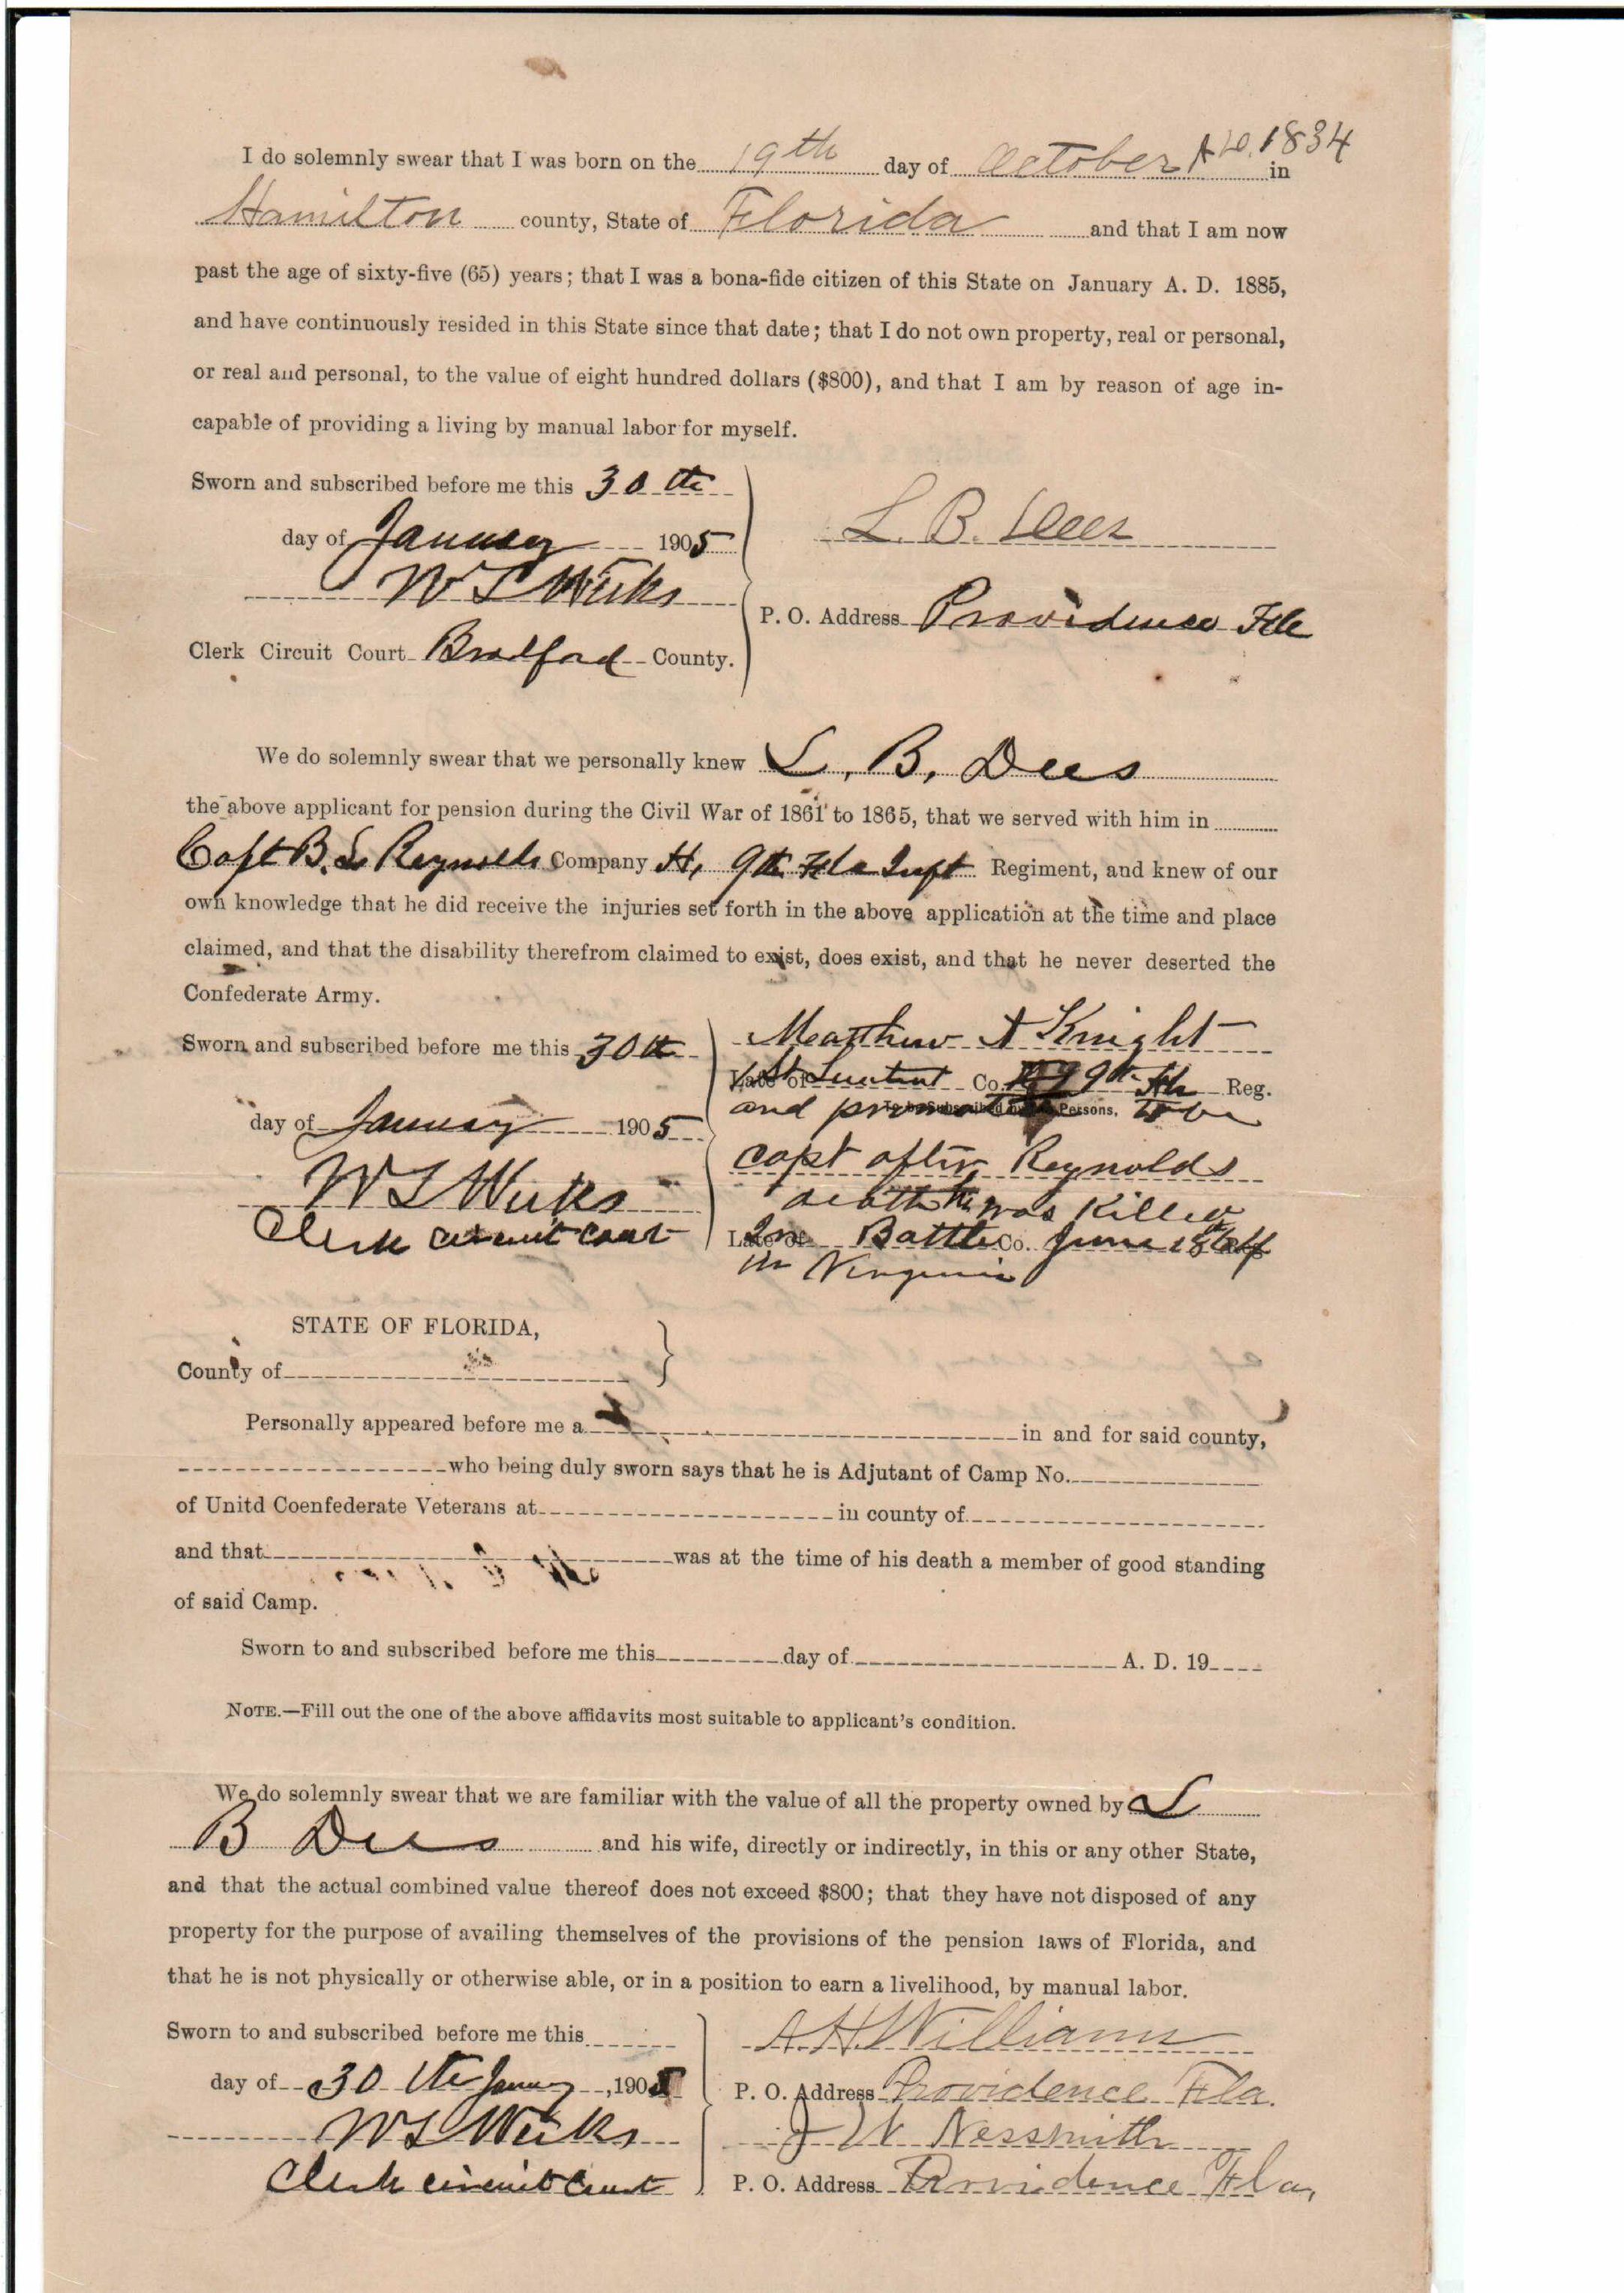 I do solemnly swear that I was born on the 19th day of October A.D. 1834 in
Hamilton county, State of Florida and that I am now
past the age of sixty-five (65) years; that I was a bona-fide citizen of this State on January A. D. 1885,
and have continuously resided in this State since that date; that I do not own property, real or personal,
or real and personal, to the value of eight hundred dollars ($800), and that I am by reason of age in-
capable of providing a living by manual labor for myself.
Sworn and subscribed before me this 30th
day of January 1905
W L Weeks
Clerk Circuit Court Bradford County.
L. B. Dees
P. O. Address Providence Fla
We do solemnly swear that we personally knew L. B. Dees
the above applicant for pension during the Civil War of 1861 to 1865, that we served with him in
Capt B. L Reynolds Company H, 9th Fla Inft Regiment, and knew of our
own knowledge that he did receive the injuries set forth in the above application at the time and place
claimed, and that the disability therefrom claimed to exist, does exist, and that he never deserted the
Confederate Army.
Sworn and subscribed before me this 30th
day of January 1905
W L Weeks
Clerk circuit court
Matthew A Knight
Late of 1st Co. 9th Fla Reg.
To be Subscribed Persons.
and to be
capt after Reynolds
death he was killed
Late of In Battle Co. June 1864
in Virginia
STATE OF FLORIDA,
County of
Personally appeared before me a in and for said county,
who being duly sworn says that he is Adjutant of Camp No.
of Unitd Coenfederate Veterans at in county of
and that was at the time of his death a member of good standing
of said Camp.
Sworn to and subscribed before me this day of A. D. 19
NOTE.—Fill out the one of the above affidavits most suitable to applicant's condition.
We do solemnly swear that we are familiar with the value of all the property owned by L
B Dees and his wife, directly or indirectly, in this or any other State,
and that the actual combined value thereof does not exceed $800; that they have not disposed of any
property for the purpose of availing themselves of the provisions of the pension laws of Florida, and
that he is not physically or otherwise able, or in a position to earn a livelihood, by manual labor.
Sworn to and subscribed before me this
day of 30th January, 1905
W L Weeks
Clerk circuit court
A. H. Williams
P. O. Address Providence Fla.
J W Nessmith
P. O. Address Providence Fla,